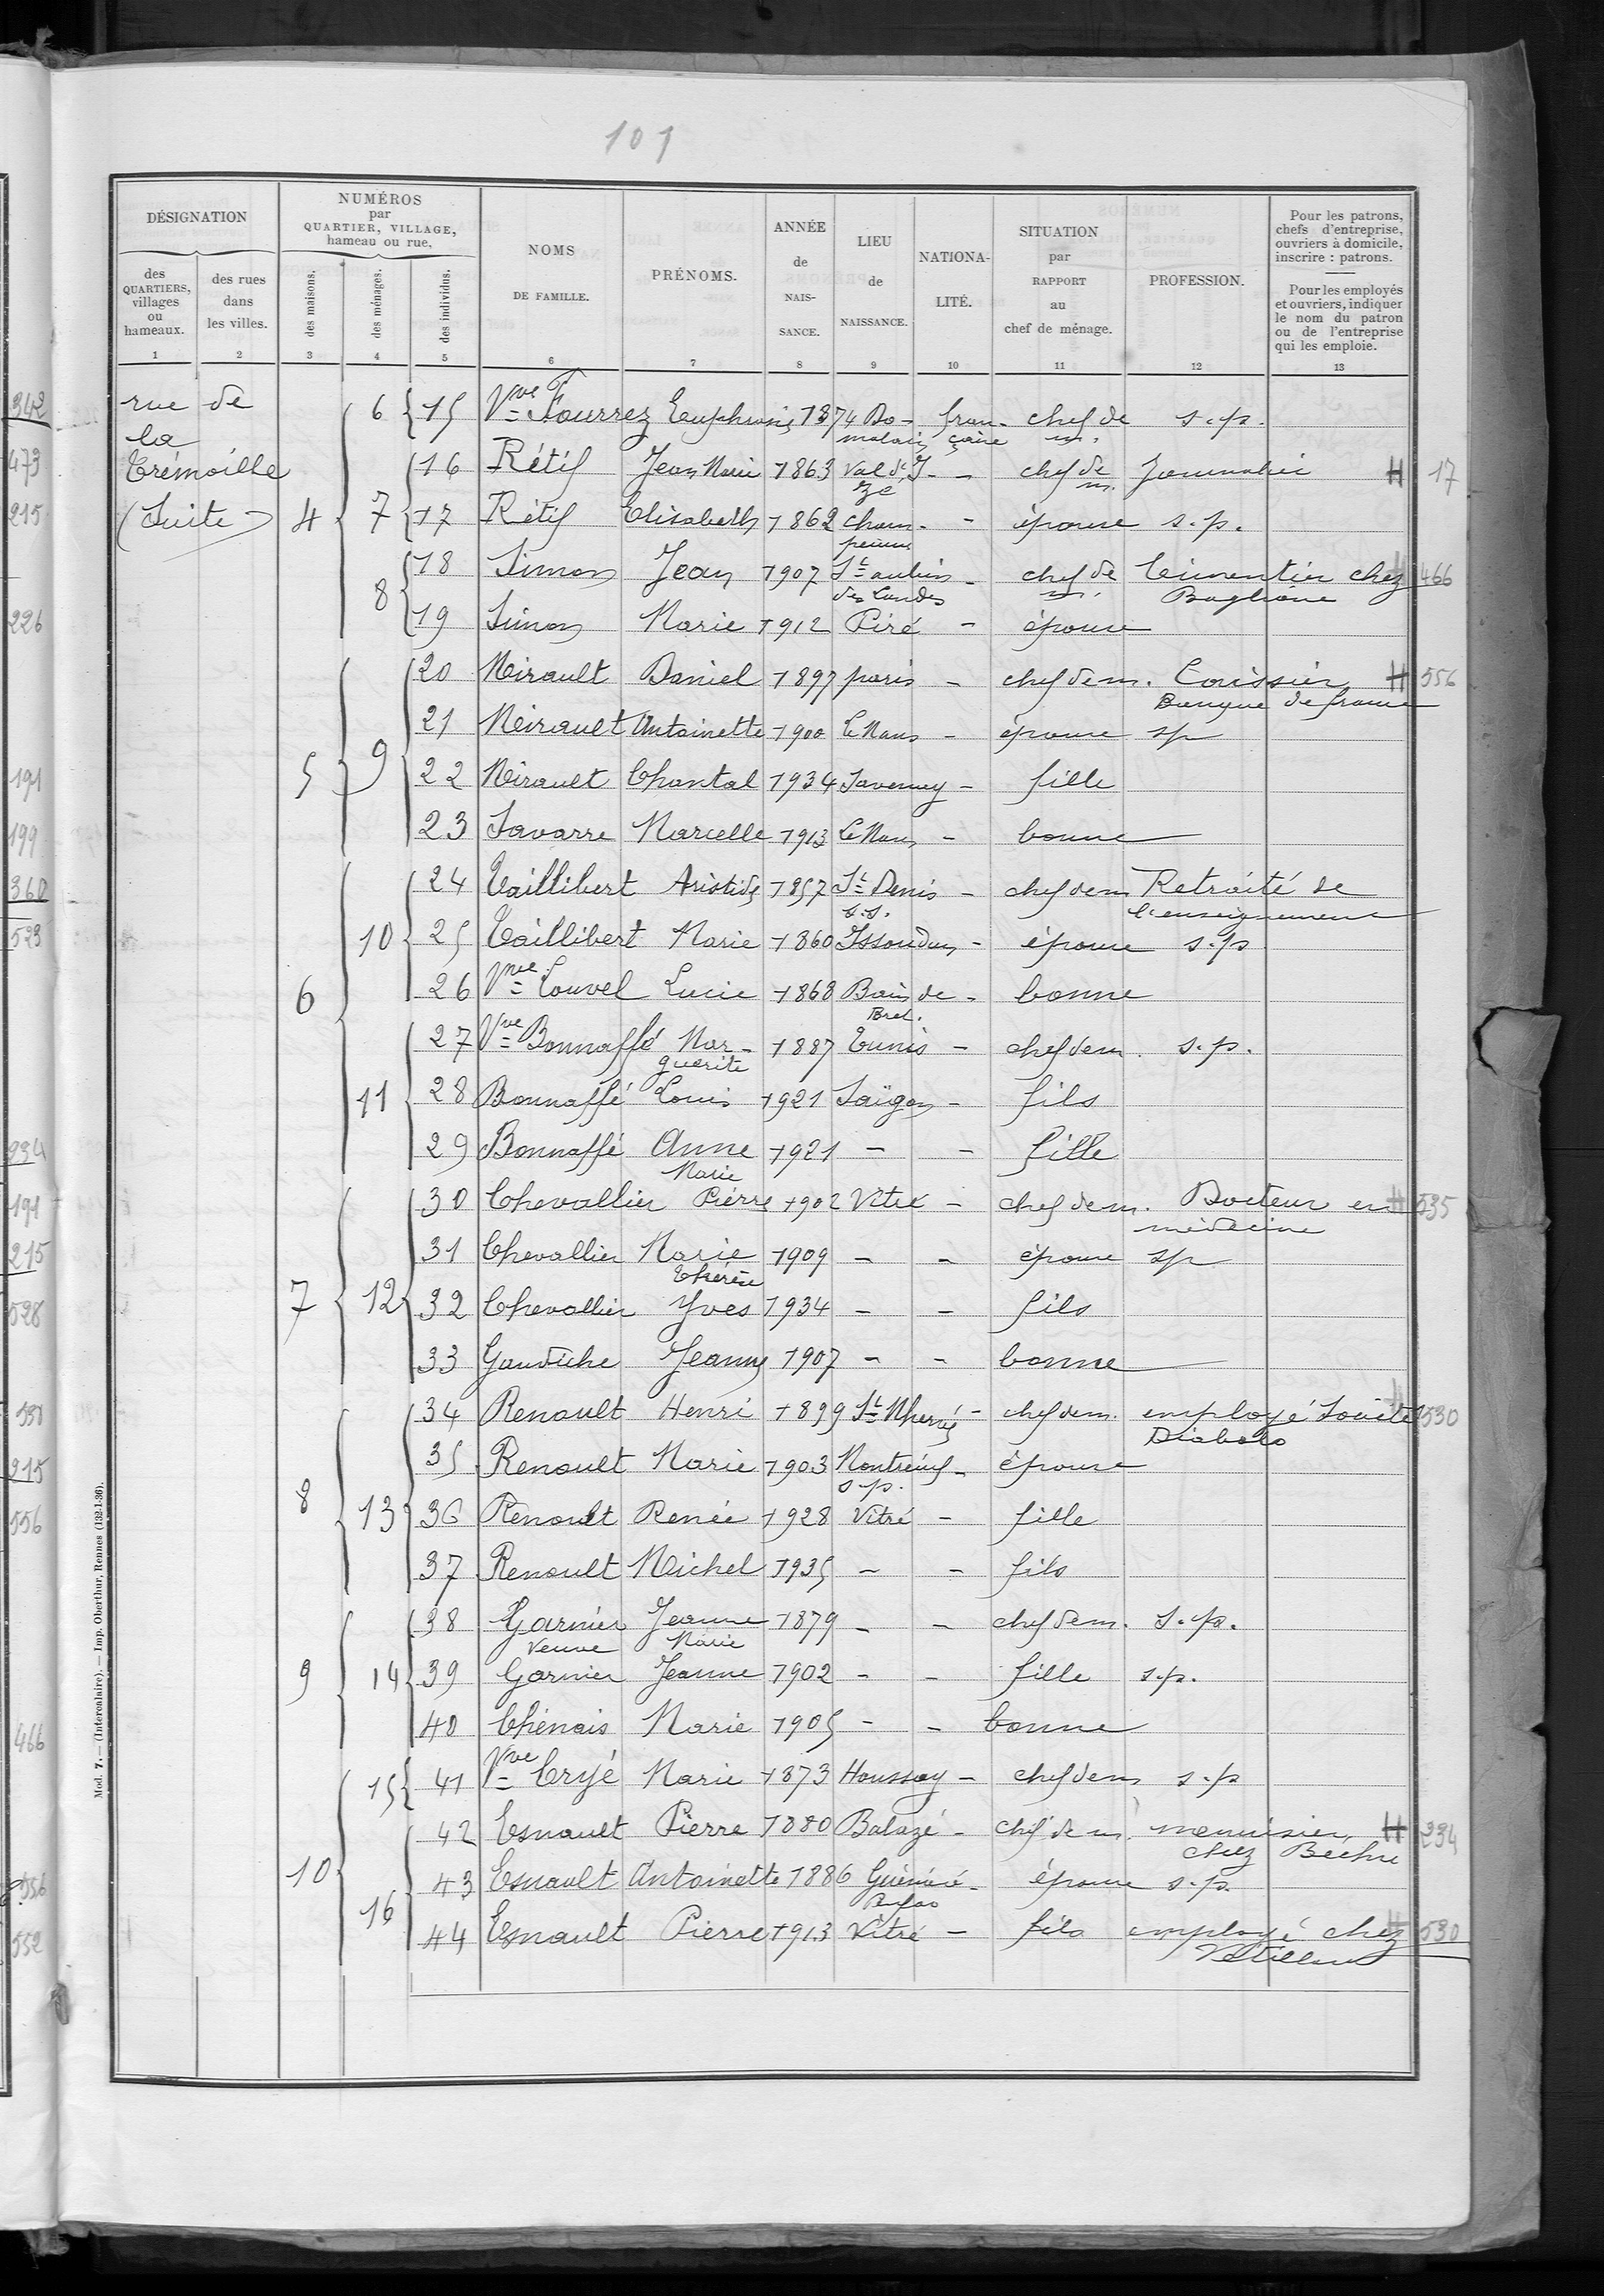 101
DÉSIGNATION
NUMÉROS
par
QUARTIER, VILLAGE,
hameau ou rue.
des
QUARTIERS,
villages
ou
hameaux.
des rues
dans
les villes.
des maisons.
des ménages.
des individus.
NOMS
DE FAMILLE.
PRÉNOMS.
ANNÉE
de
NAIS-
SANCE.
LIEU
de
NAISSANCE.
NATIONA-
LITÉ.
SITUATION
par
RAPPORT
au
chef de ménage.
PROFESSION.
Pour les patrons,
chefs d'entreprise,
ouvriers à domicile,
inscrire : patrons.
Pour les employés
et ouvriers, indiquer
le nom du patron
ou de l'entreprise
qui les emploie.
1 2 3 4 5 6 7 8 9 10 11 12 13
rue de
la
Trémoille
(Suite)
6 15 Vve Fourrez 1874 Do- fran- chef de s.p.
malain çaise m.
16 Rétif Jean Marie 1863 Val d'I- - chef de Journalier H 17
zé m.
4 7 17 Rétif Elisabeth 1862 Cham- - épouse s.p.
peaux
8 18 Simon Jean 1907 St aubin - chef de Cimentier chez 466
des Landes m. Baglione
19 Simon Marie 1912 Piré - épouse
20 Mirault Daniel 1897 paris - chef de m. Caissier H 556
Banque de france
21 Mirault Antoinette 1900 Le Mans - épouse sp
5 9 22 Mirault Chantal 1934 Savenay - fille
23 Savarre Marcelle 1913 Le Mans - bonne
24 Taillibert Aristide 1857 St Denis - chef de m Retraité de
s.s. l'enseignement
10 25 Taillibert Marie 1860 Issoudun - épouse s.p
6 26 Vve Louvel Lucie 1868 Bain de - bonne
Bret.
27 Vve Bonnaffé Mar- 1887 Tunis - chef de m. s.p.
guerite
11 28 Bonnaffé Louis 1921 Saïgon - fils
29 Bonnaffé Anne 1921 - - fille
Marie
30 Chevallier Pierre 1902 Vitré - chef de m. Docteur en H 535
médecine
31 Chevallier Marie 1909 - - épouse sp
Thérèse
7 12 32 Chevallier Yves 1934 - - fils
33 Gaudiche Jeanne 1907 - - bonne
34 Renault Henri 1899 St Mhervé - chef de m. employé Société H 530
Diabolo
35 Renault Marie 1903 Montreuil - épouse
s.p.
8 13 36 Renault Renée 1928 Vitré - fille
37 Renault Michel 1935 - - fils
38 Garnier Jeanne 1879 - - chef de m. s.p.
Veuve Marie
9 14 39 Garnier Jeanne 1902 - - fille s.p.
40 Chénais Marie 1905 - - bonne
15 41 Vve Cryé Marie 1873 Houssay - chef de m s.p
42 Esnault Pierre 1880 Balazé - chef de m menuisier H 234
chez Bechu
10 43 Esnault Antoinette 1886 Guéméné - épouse s.p.
Penfao
16 44 Esnault Pierre 1913 Vitré - fils employé chez H 530
342
473
215
226
191
199
360
523
234
191
215
528
530
215
556
466
556
552
Mod. 7. — (Intercalaire). — Imp. Oberthur, Rennes (132-1-36).